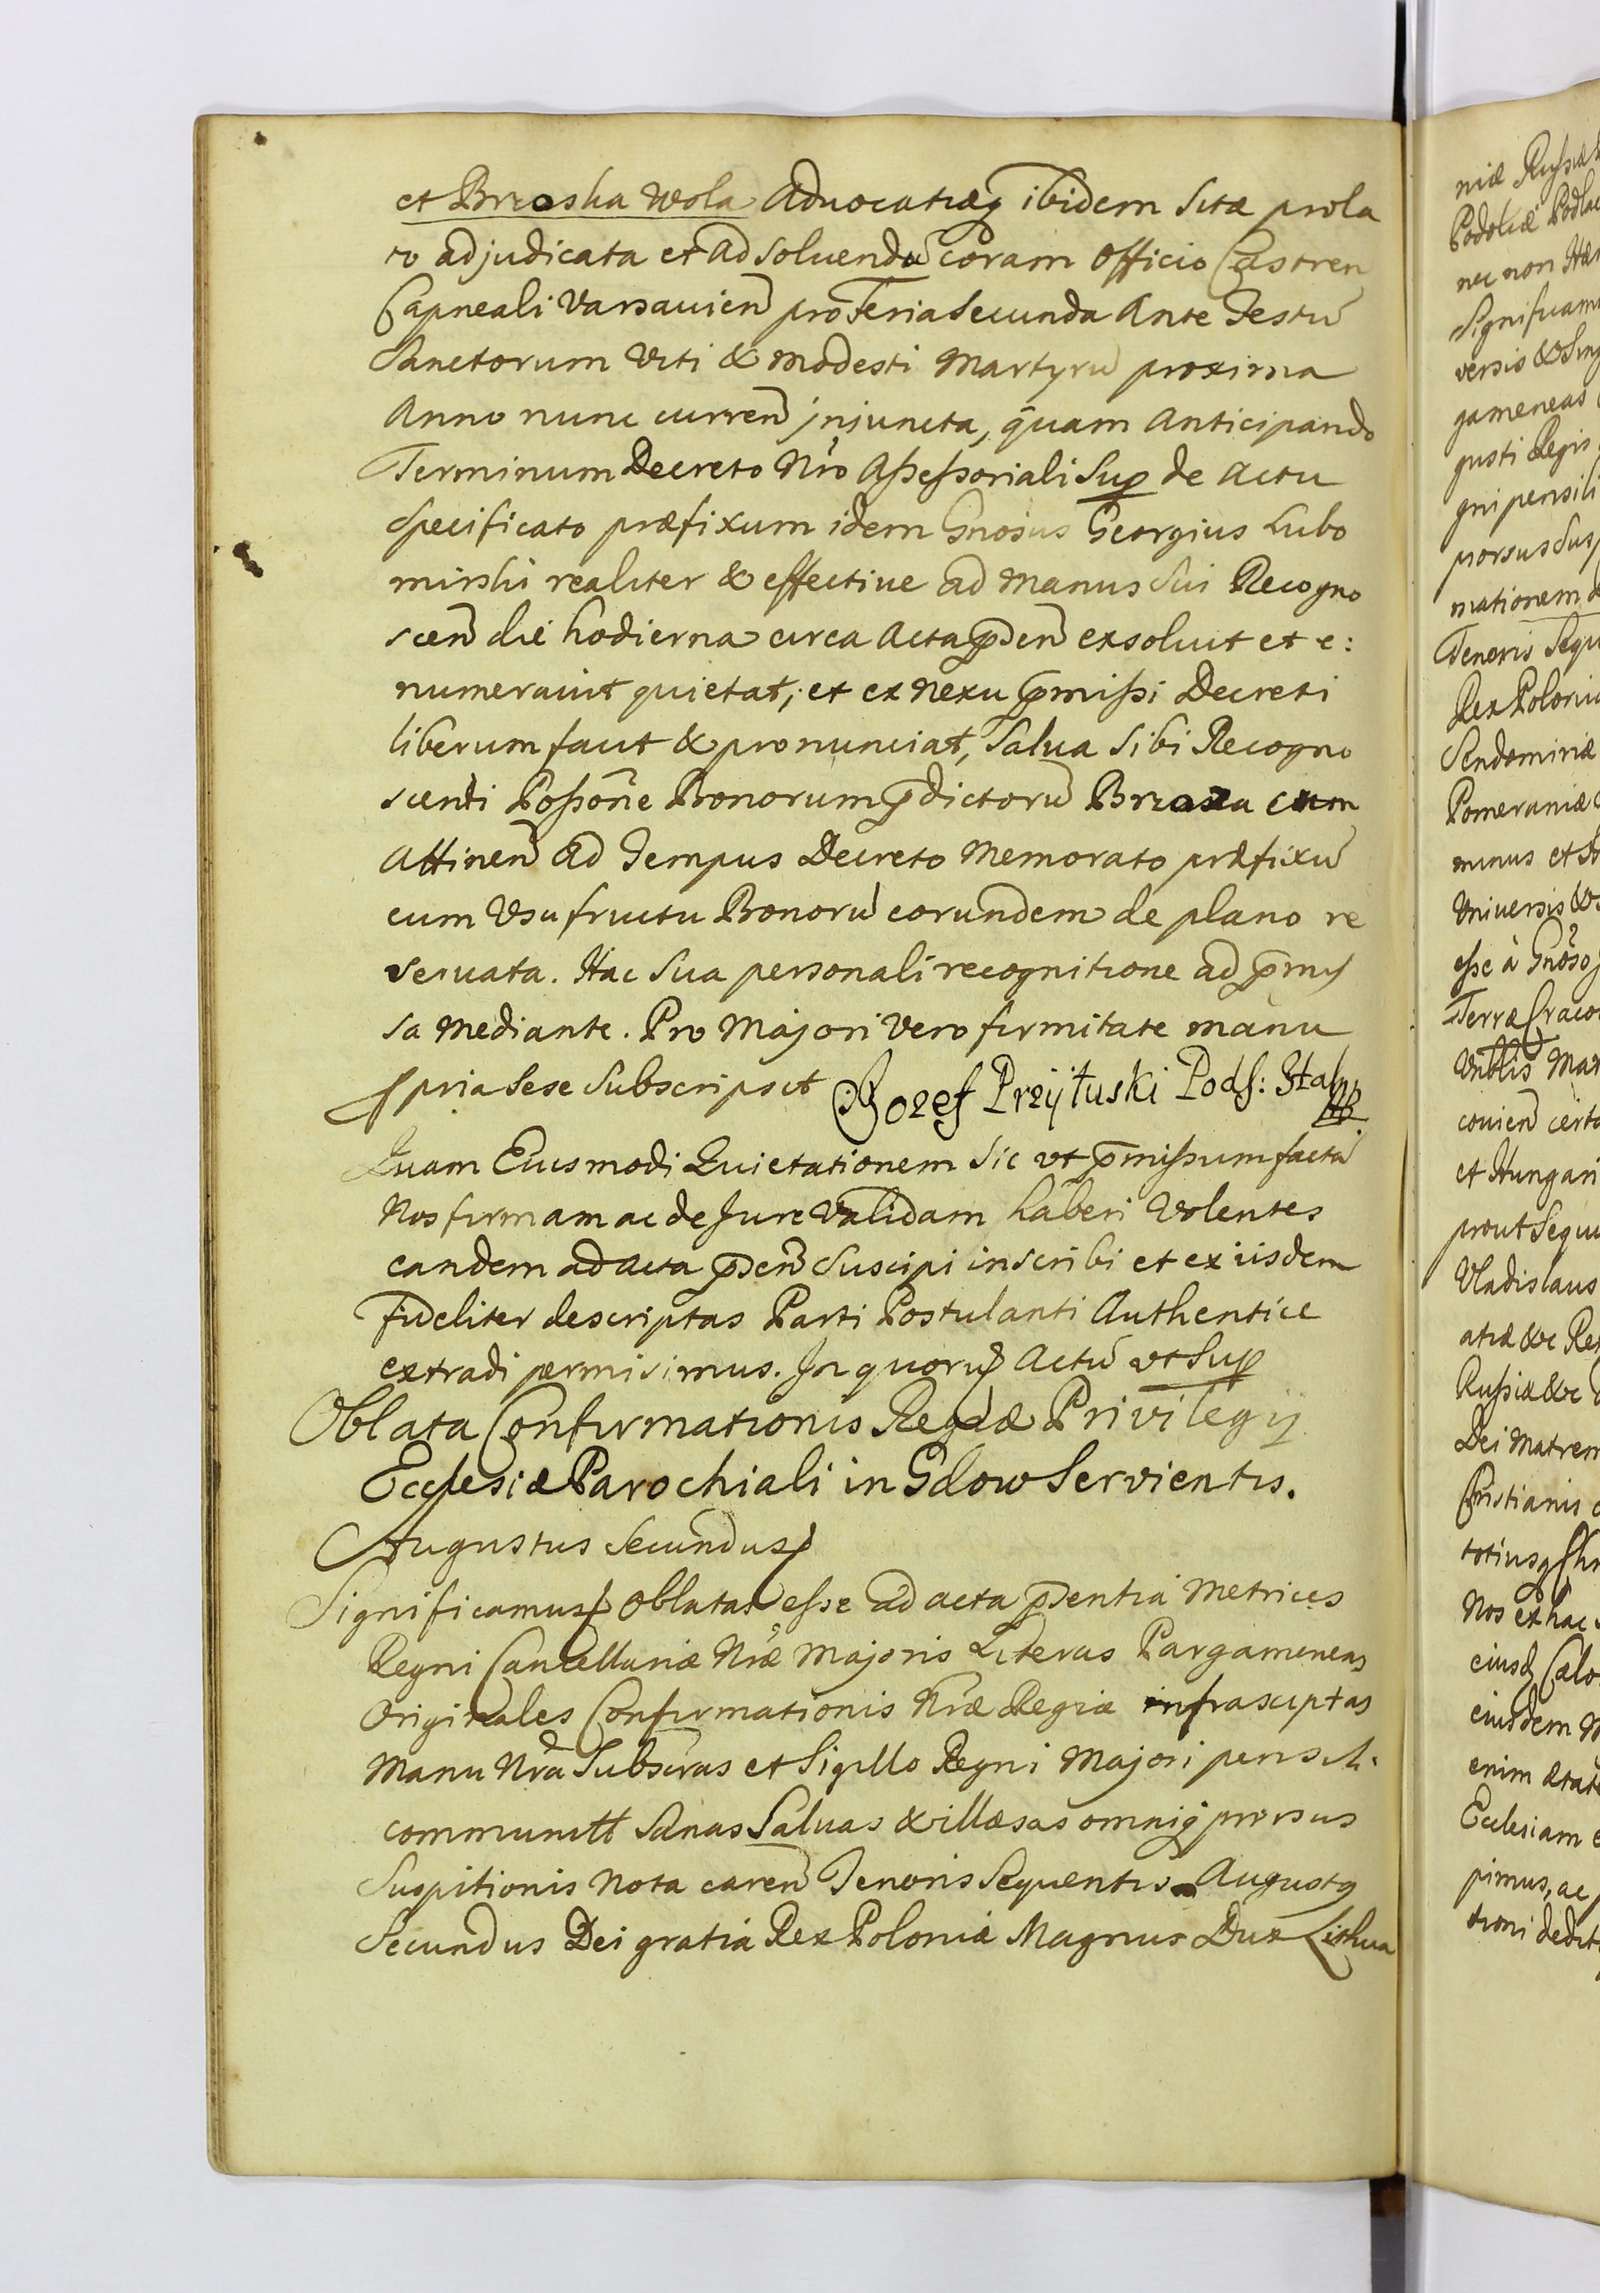 et Brzoska Wola Aduocatiæq ibidem Sitæ prola
to adjudicata et ad soluendū coram Officio Castren
Capneali Varsauien pro Feria Secunda Ante Festū
Sanctorum Viti & Modesti Martyrū proxima
Anno nunc curren jniuncta, quam Anticipando
Terminum Decreto Nro Assessoriali Sup de Actu
Specificato præfixum idem Gnosus Georgius Lubo
mirski realiter & effectiue ad Manus Sui Recogno
scen die hodierna circa Acta pnsen exsoluit et e:
numerauit quietat, et ex Nexu pmissi Decreti
liberum facit & pronunciat, Salua Sibi Recogno
scenti Possone Bonorum pdictorū Brzoza cum
Attinen ad Tempus Decreto Memorato præfixū
cum Vsufructu Bonorū eorundem de plano re
seruata. Hac Sua personali recognitione ad pmis
sa Mediante. Pro Majori Vero firmitate manu
ppria Sese Subscripsit Jozef Przyłuski Pods: Stab:
Quam Eiusmodi Quietationem Sic vt pmissum factā
Nos firmam ac de Jure Validam haberi Volentes
eandem ad acta pnsen Suscipi inscribi et ex iisdem
fideliter descriptas Parti Postulanti Authentice
extradi permisimus. In quorū Actū vt Sup
Oblata Confirmationis Regiæ Privilegij
Ecclesiæ Parochiali in Gdow Servientis.
Augustus Secundus
Significamus Oblatas esse ad acta pnsentia Metrices
Regni Cancellariæ Nræ Majoris Literas Pargameneas
Originales Confirmationis Nræ Regiæ infrascriptas
Manu Nra Subscras et Sigillo Regni Majori pensili
communitt Sanas Saluas & illæsas omniq prorsus
Suspitionis Nota caren Tenoris Sequentis. Augustq
Secundus Dei gratia Rex Poloniæ Magnus Dux Lithua
niæ Russiæ
Podoliæ Podlac
nec non Hær
Significam
versis & Sing
gameneas
gusti Regis
gni pensili
prorsus Sus
mationem d
Tenoris Sequ
Rex Poloniæ
Sendomiriæ
Pomeraniæ
minus et
Vniuersis &
esse à Gnoso
Terræ Craco
Vnblis Mar
couien certa
et Hungari
prout Sequ
Vladislaus
atiæ &c Rex
Russiæ &c
Dei Matrem
Christianis
totiusq Chr
Nos et hac
eiusd Calo
eiusdem N
enim ætate
Ecclesiam
pimus, ac
tioni dedit